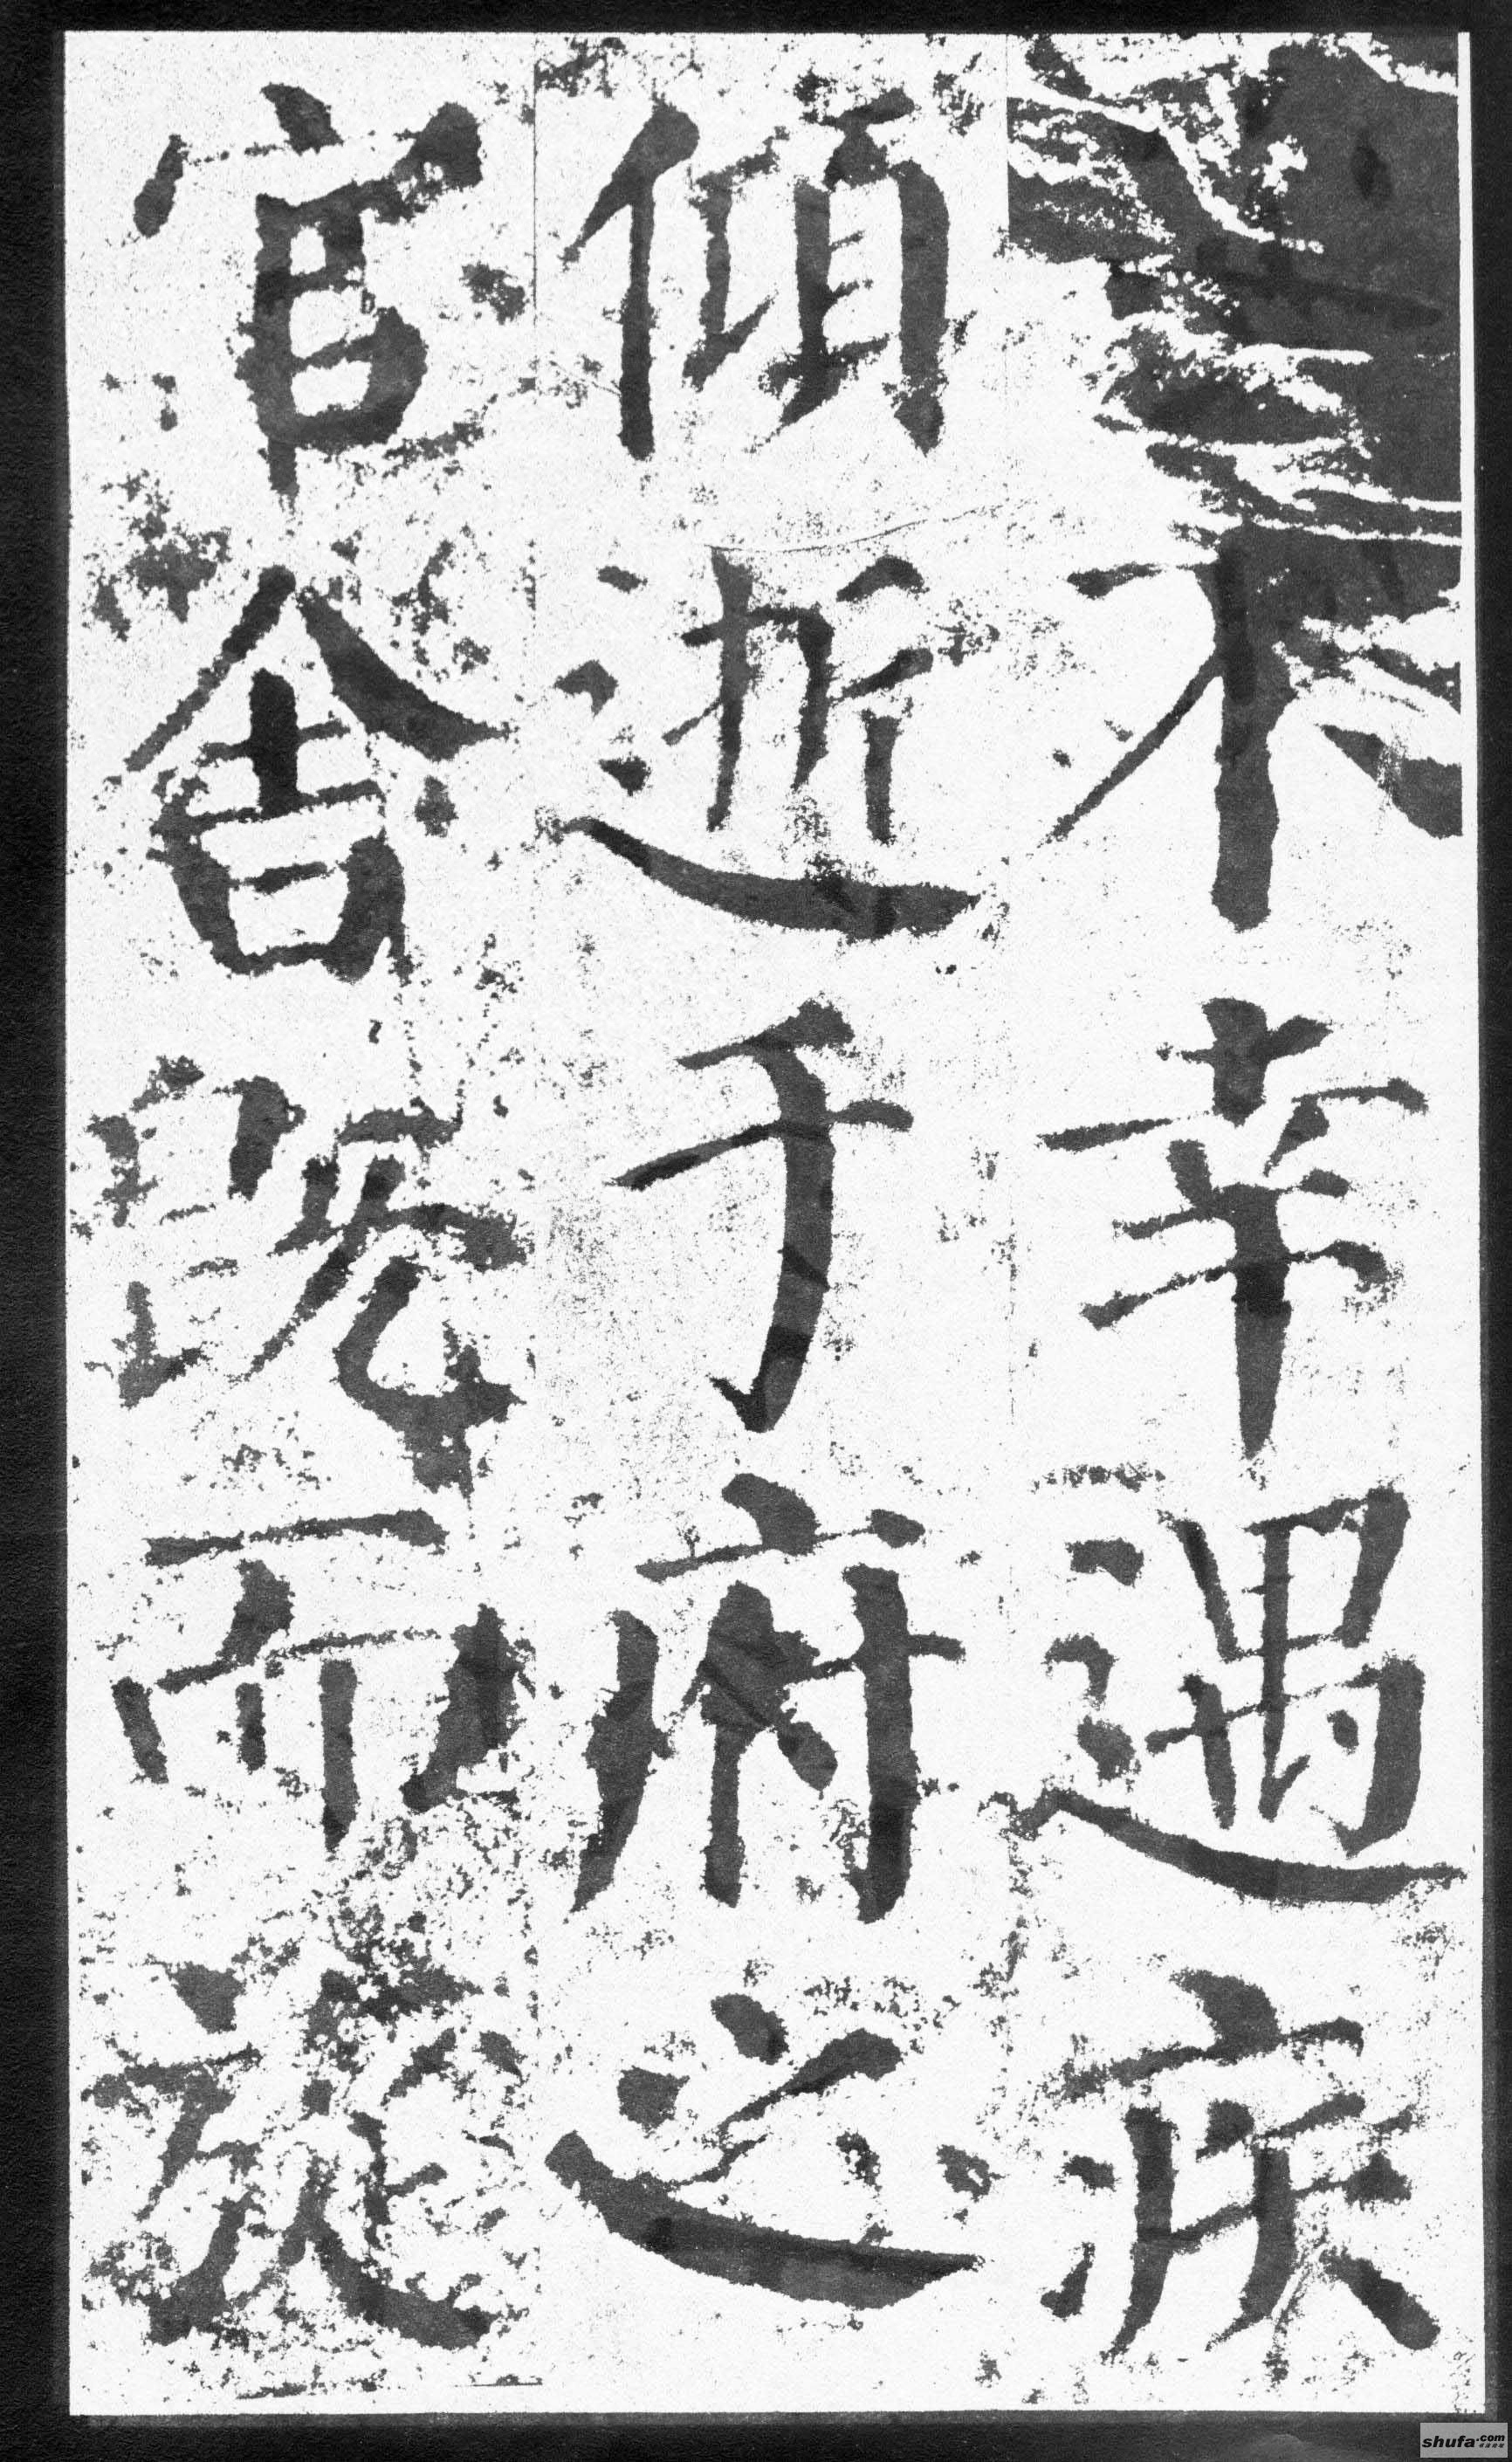 不幸遇疾
傾逝于府之
官舍既而旋
shufa.com